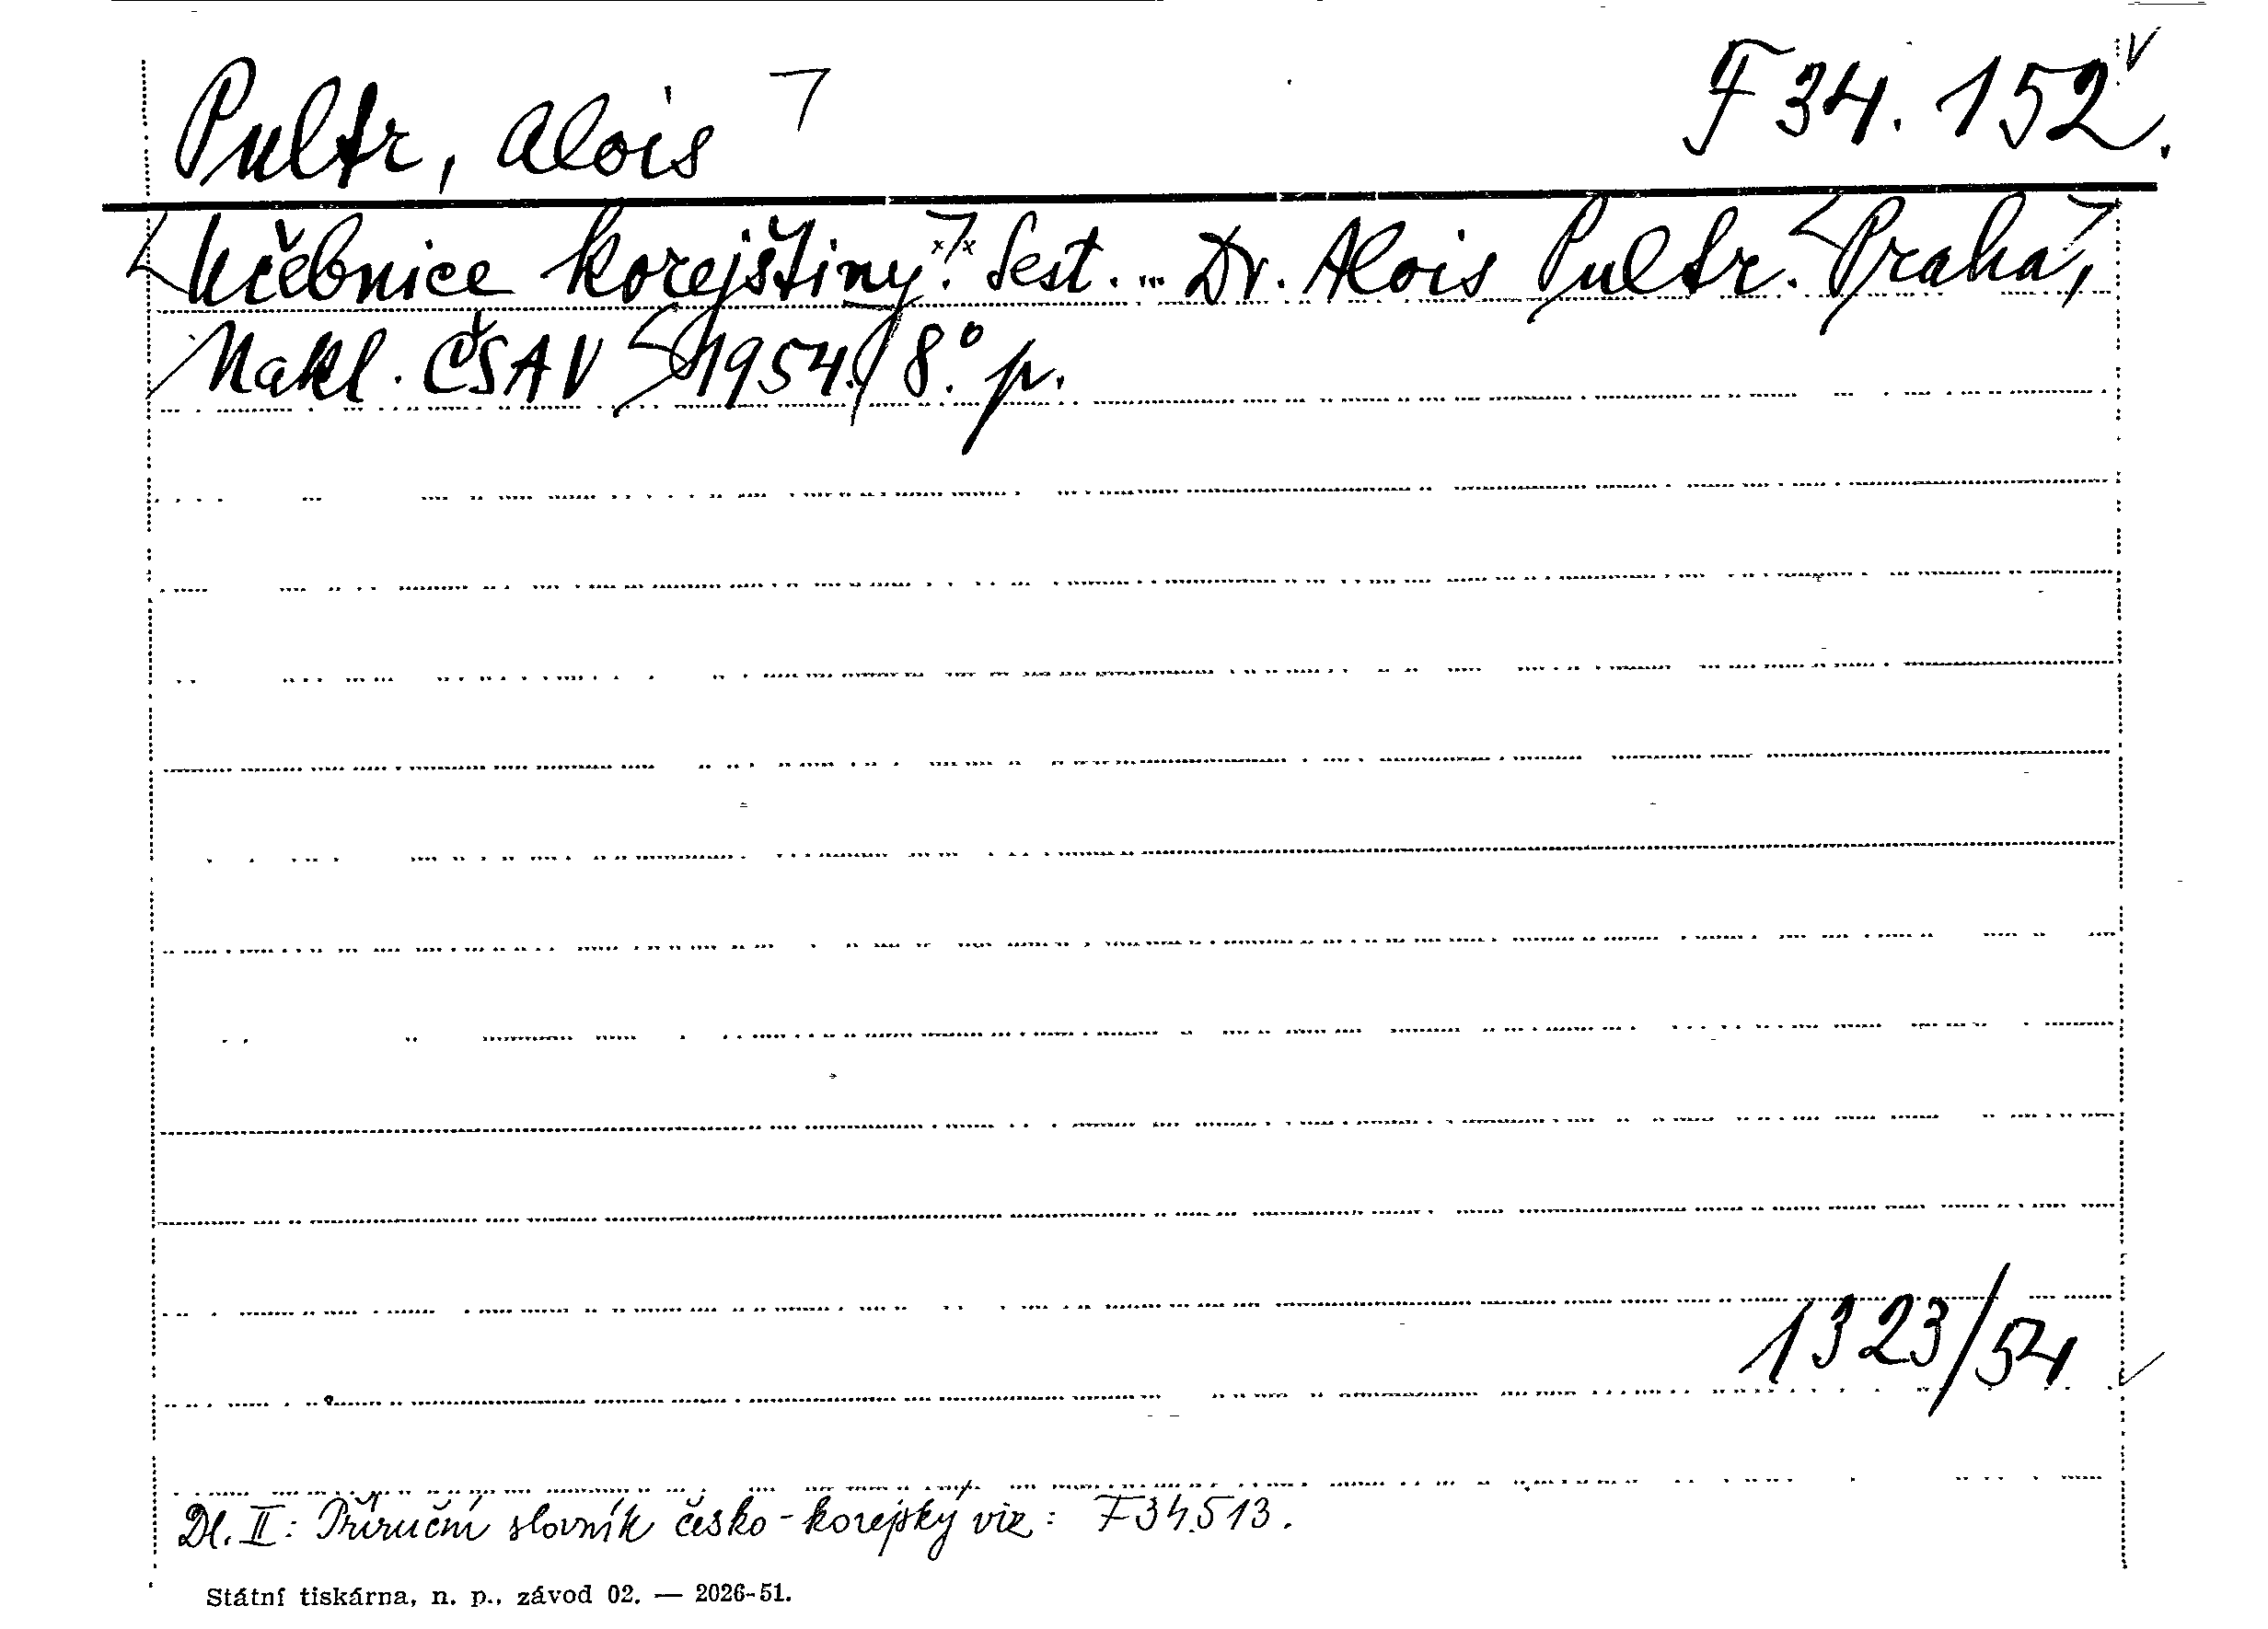 Pultr, Alois F 34.152.
Učebnice korejštiny. Sest. ... Dr. Alois Pultr. Praha,
Nakl. ČSAV 1954. 8°. p.
1323/54
Dl. II: Příruční slovník česko-korejský viz: F34.513.
Státní tiskárna, n. p., závod 02. — 2026-51.